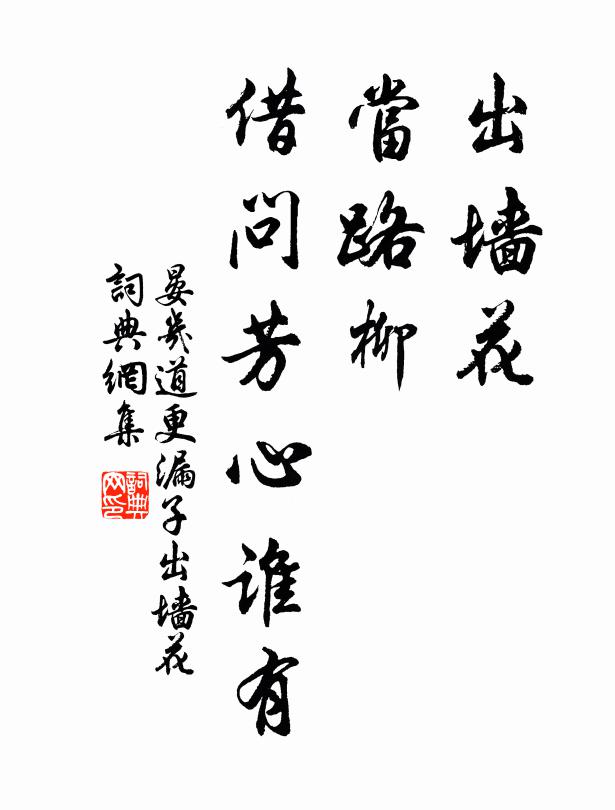 出墙花
當路柳
借問芳心誰有
晏幾道更漏子出墙花
詞典網集
詞典网印